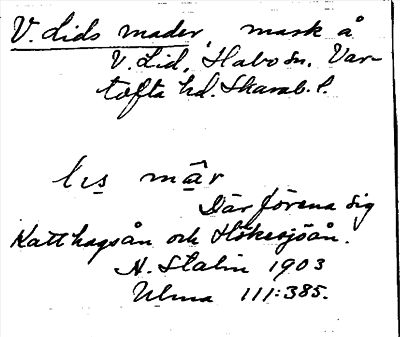 V. Lids mader, mark å
V. Lid, Habo sn. Var-
tofta hd. Skarab. l.
lɩs mâr
Där förena sig
Katthagsån och Hökesjöån.
H. Stalin 1903
Ulma 111:385.